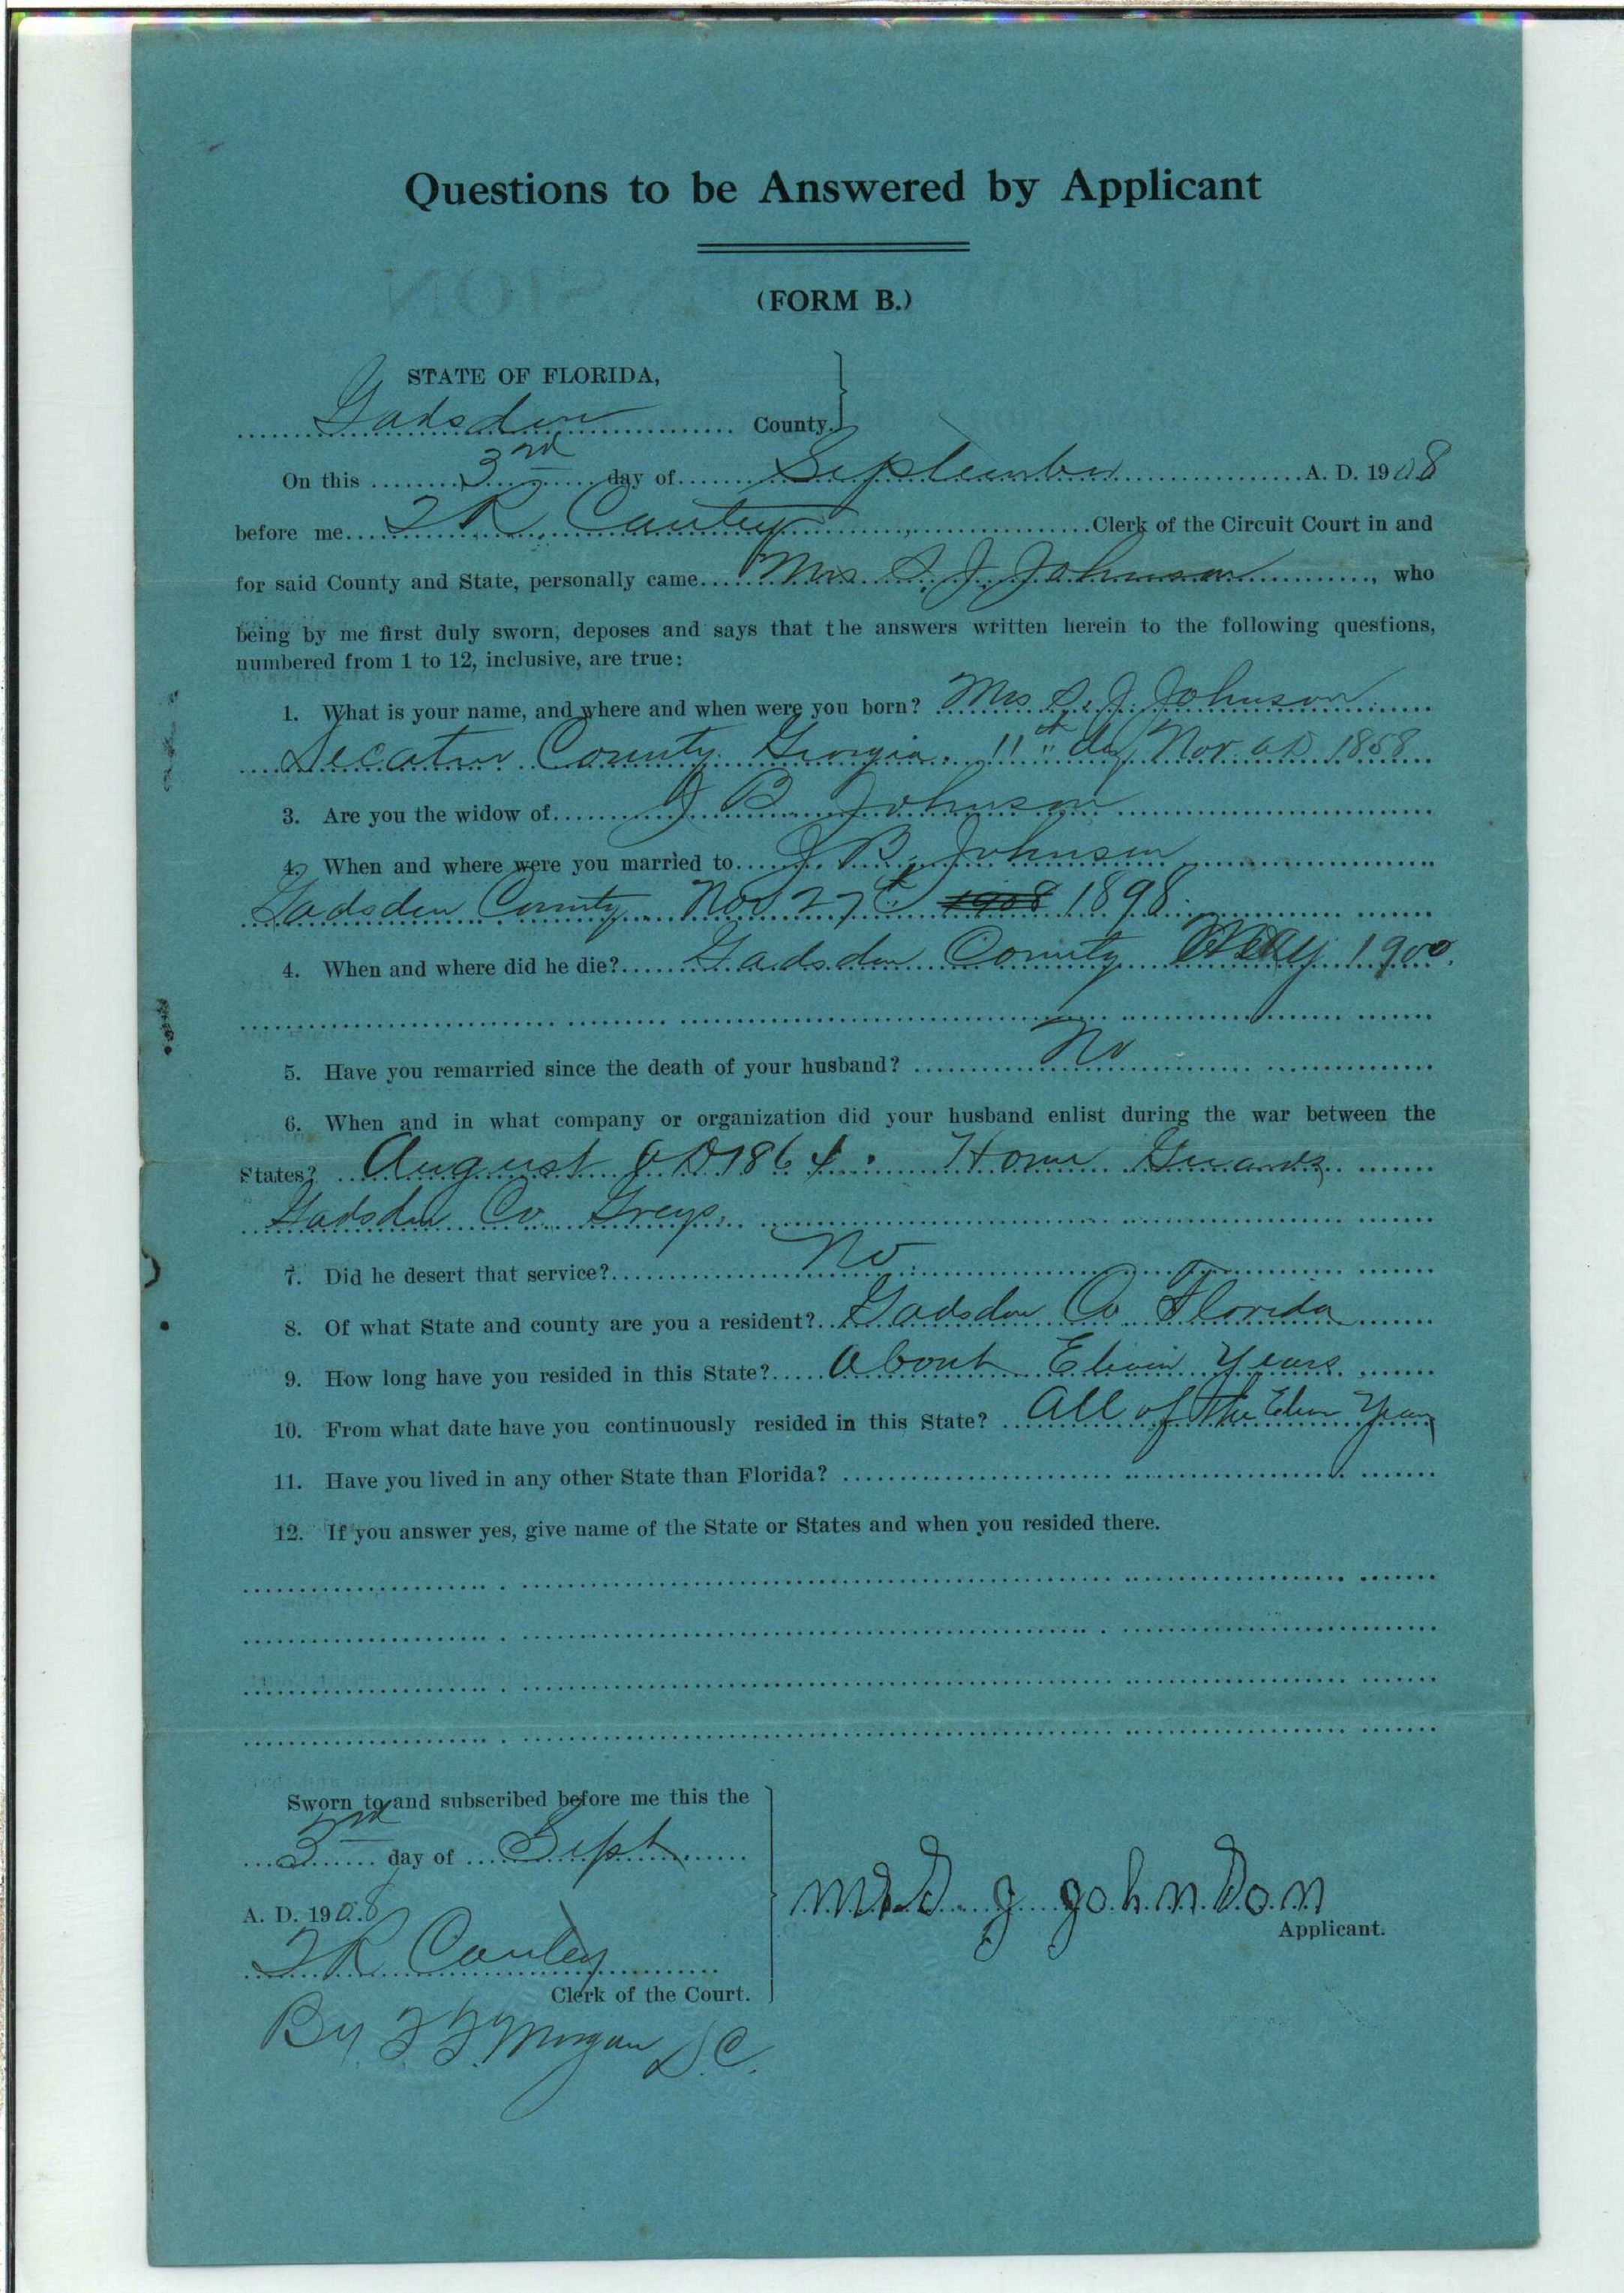 Questions to be Answered by Applicant
(FORM B.)
STATE OF FLORIDA,
Gadsden County.
On this 3rd day of September A. D. 1908
before me Clerk of the Circuit Court in and
for said County and State, personally came Mrs S. J. Johnson, who
being by me first duly sworn, deposes and says that the answers written herein to the following questions,
numbered from 1 to 12, inclusive, are true:
1. What is your name, and where and when were you born? Mrs S. J. Johnson
Decatur County Georgia. 11th day Nov. AD 1858
3. Are you the widow of J B Johnson
4. When and where were you married to J. B. Johnson
Gadsden County Nov 27th 1908 1898
4. When and where did he die? Gadsden County May 1900.
5. Have you remarried since the death of your husband? No
6. When and in what company or organization did your husband enlist during the war between the
States? August AD 1864. Home Guards
Gadsden Co. Greys.
7. Did he desert that service? No.
8. Of what State and county are you a resident? Gadsden Co Florida
9. How long have you resided in this State? About Elevin Years
10. From what date have you continuously resided in this State? All of the Elevn Years
11. Have you lived in any other State than Florida?
12. If you answer yes, give name of the State or States and when you resided there.
Sworn to and subscribed before me this the
3rd day of Sept
A. D. 1908
Mrs S J Johnson
Applicant.
Clerk of the Court.
By Morgan D.C.